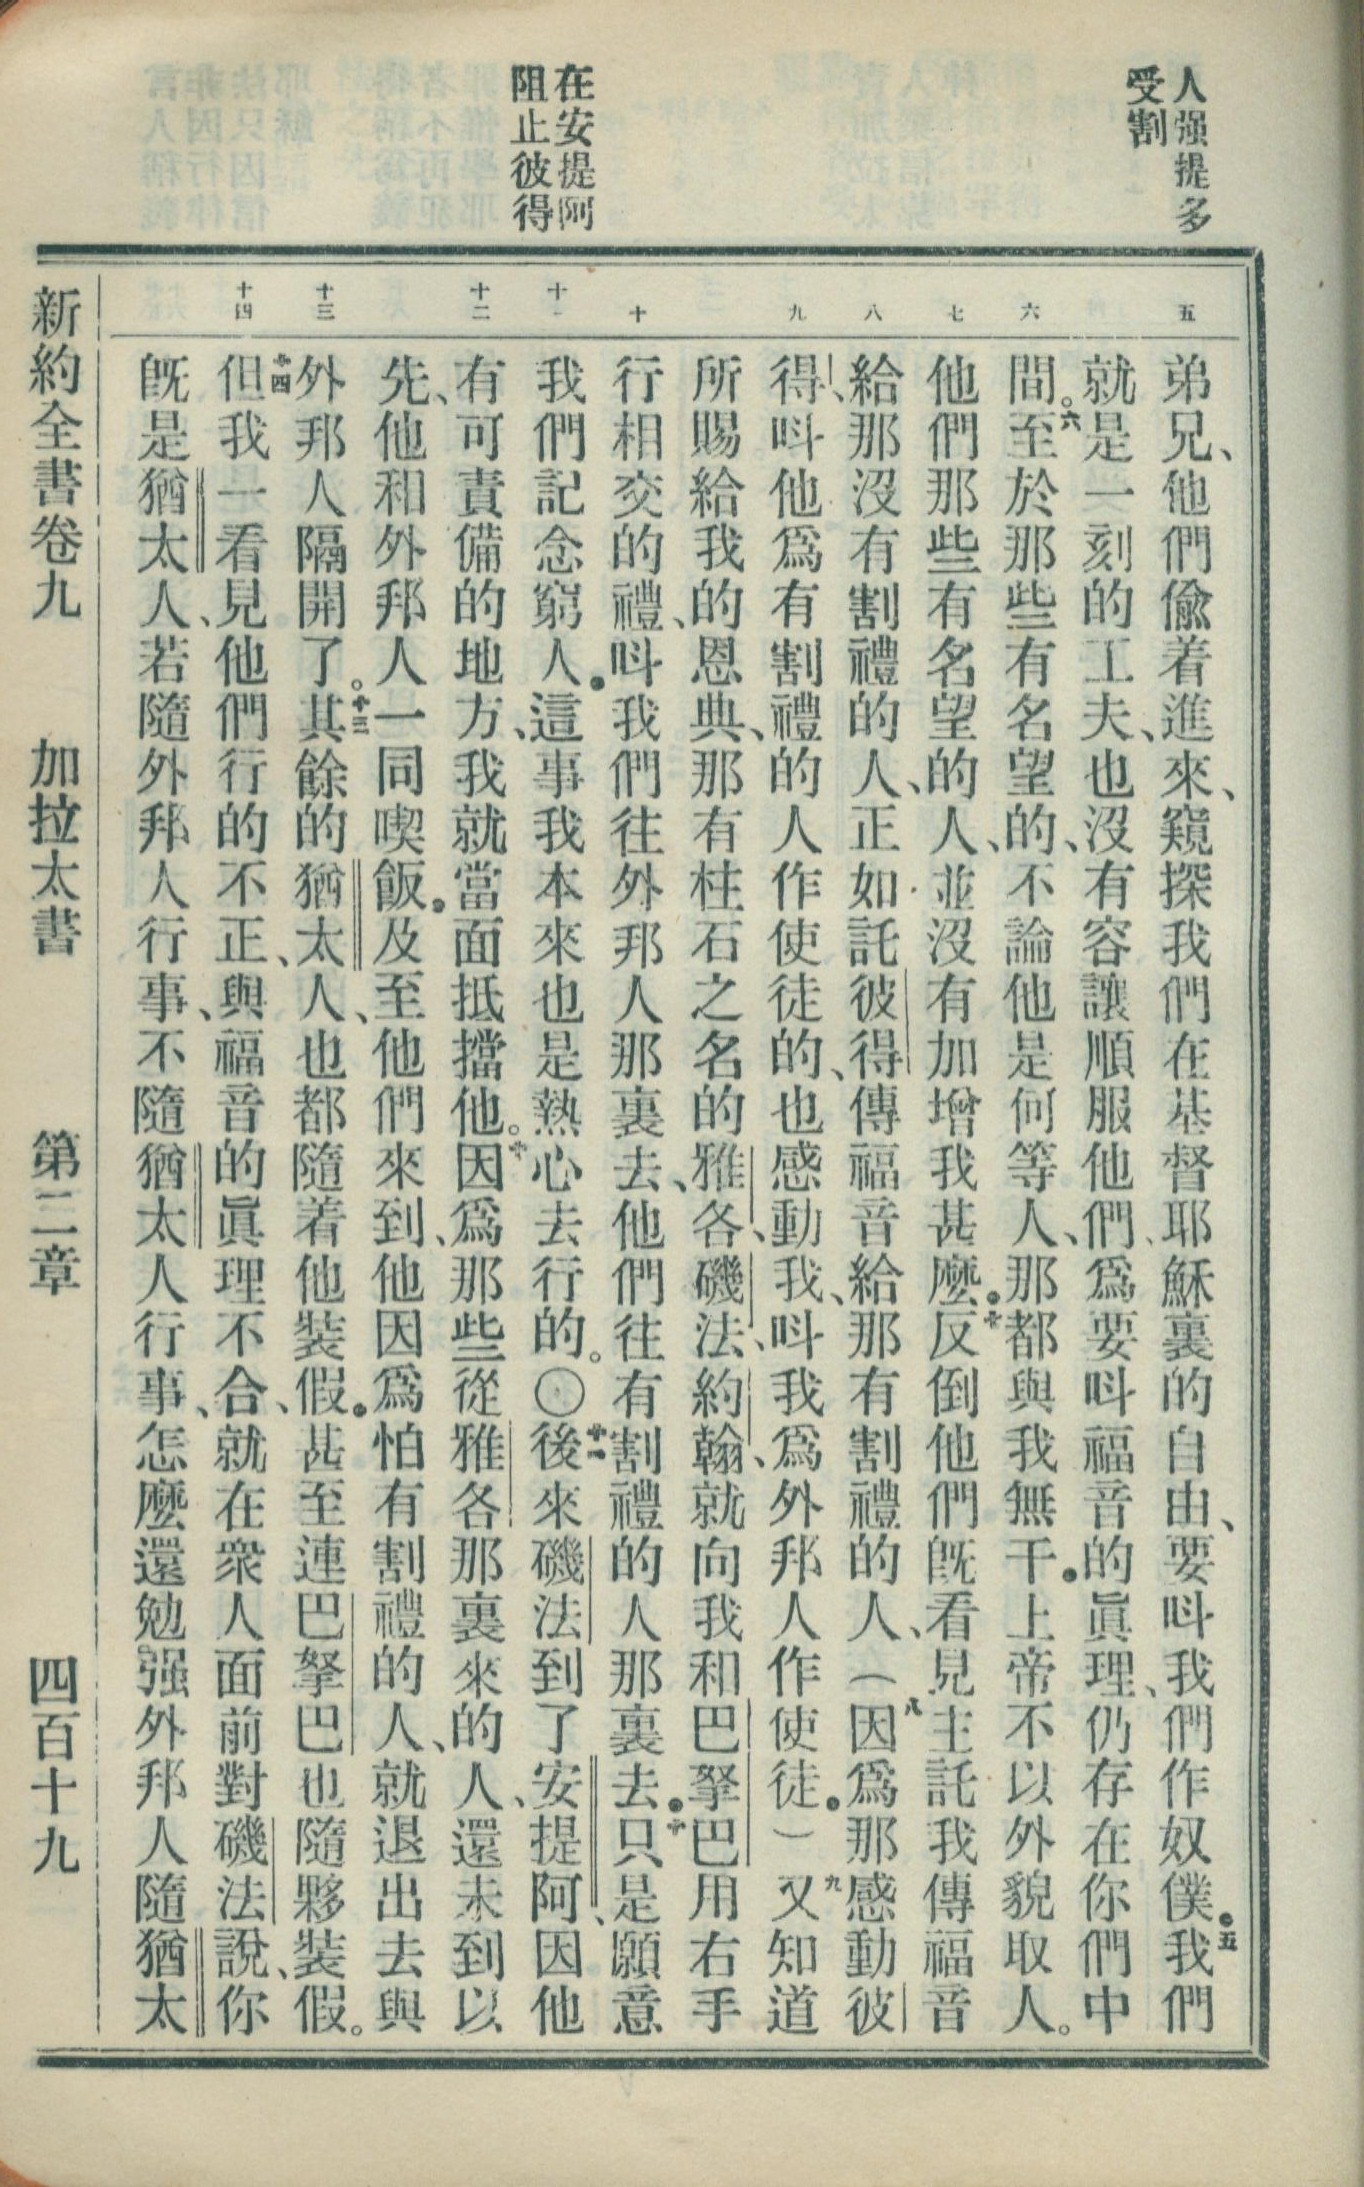 人强提多
受割
在安提阿
阻止彼得
五
六
七
八
九
十
十一
十二
十三
十四
弟兄、他們偸着進來、窺探我們在基督耶穌裏的自由、要呌我們作奴僕。五我們
就是一刻的工夫、也沒有容讓順服他們、爲要呌福音的眞理、仍存在你們中
間。六至於那些有名望的、不論他是何等人、那都與我無干。上帝不以外貌取人。
他們那些有名望的人、並沒有加增我甚麼。七反倒他們旣看見主託我傳福音
給那沒有割禮的人、正如託彼得傳福音給那有割禮的人、（八因爲那感動彼
得、呌他爲有割禮的人作使徒的、也感動我、呌我爲外邦人作使徒。）九又知道
所賜給我的恩典、那有柱石之名的雅各、磯法、約翰、就向我和巴拏巴用右手
行相交的禮、呌我們往外邦人那裏去、他們往有割禮的人那裏去。十只是願意
我們記念窮人。這事我本來也是熱心去行的。〇十一後來磯法到了安提阿、因他
有可責備的地方、我就當面抵擋他。十二因爲那些從雅各那裏來的人、還未到以
先、他和外邦人一同喫飯。及至他們來到、他因爲怕有割禮的人、就退出去與
外邦人隔開了。十三其餘的猶太人、也都隨着他裝假。甚至連巴拏巴也隨夥裝假。
十四但我一看見他們行的不正、與福音的眞理不合、就在衆人面前對磯法說、你
旣是猶太人、若隨外邦人行事、不隨猶太人行事、怎麼還勉强外邦人隨猶太
新約全書卷九　加拉太書　第二章　四百十九